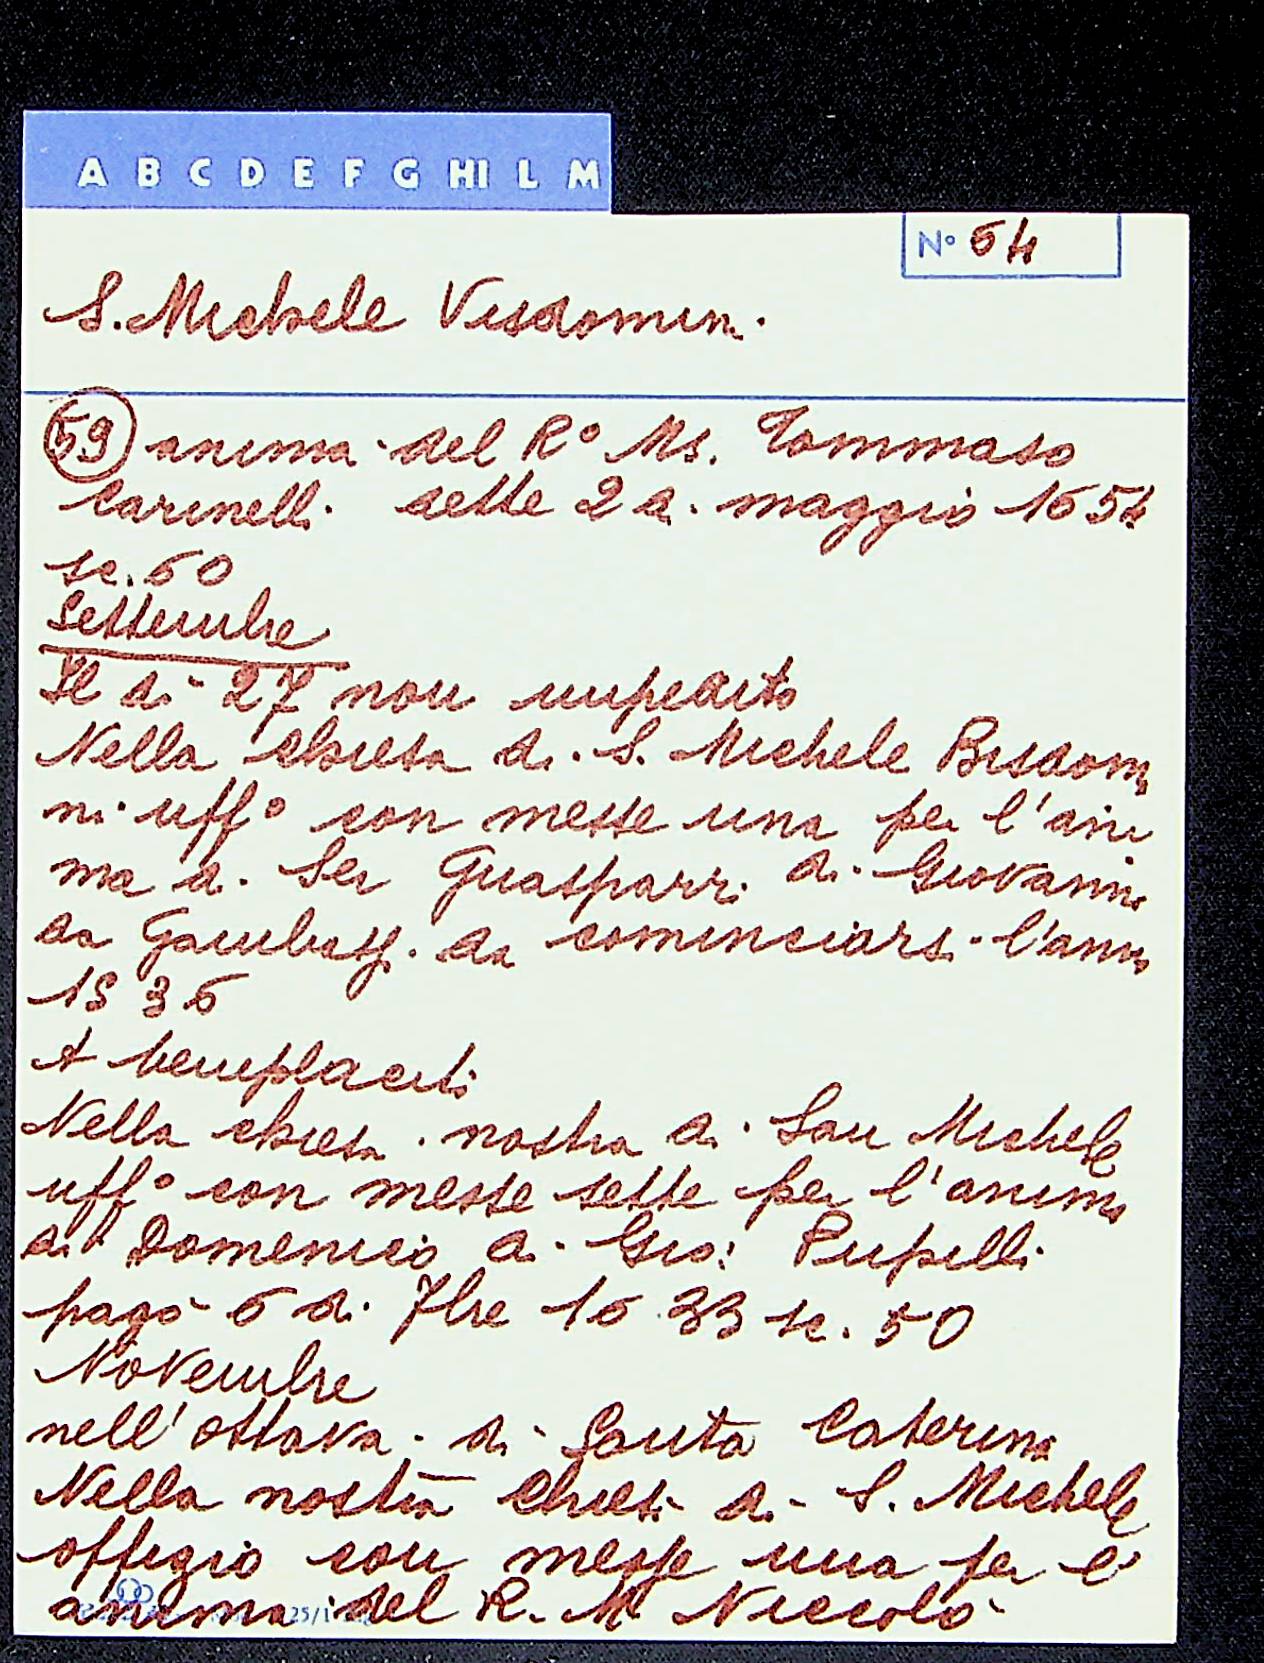 A B C D E F G HI L M
N° 64
S. Michele Visdomini
59 anima del R° Ms. Tommaso
Carinelli dette 2 a. maggio 1654
sc. 60
Settembre
Il dì 27 non impedito
Nella chiesa di S. Michele Bisdomi
ni uff° con messe una per l'ani
ma di Ser Guasparri di Giovanni
da Gambassi da cominciarsi l'anno
1536
A beneplaciti
Nella chiesa nostra di San Michele
uff° con messe sette per l'anima
di Domenico di Gio: Pupilli
pagò 6 di 7bre 1633 sc. 50
Novembre
nell'ottava di Santa Caterina
Nella nostra chiesa di S. Michele
offizio con messe una per l'
anima del R. M Niccolò